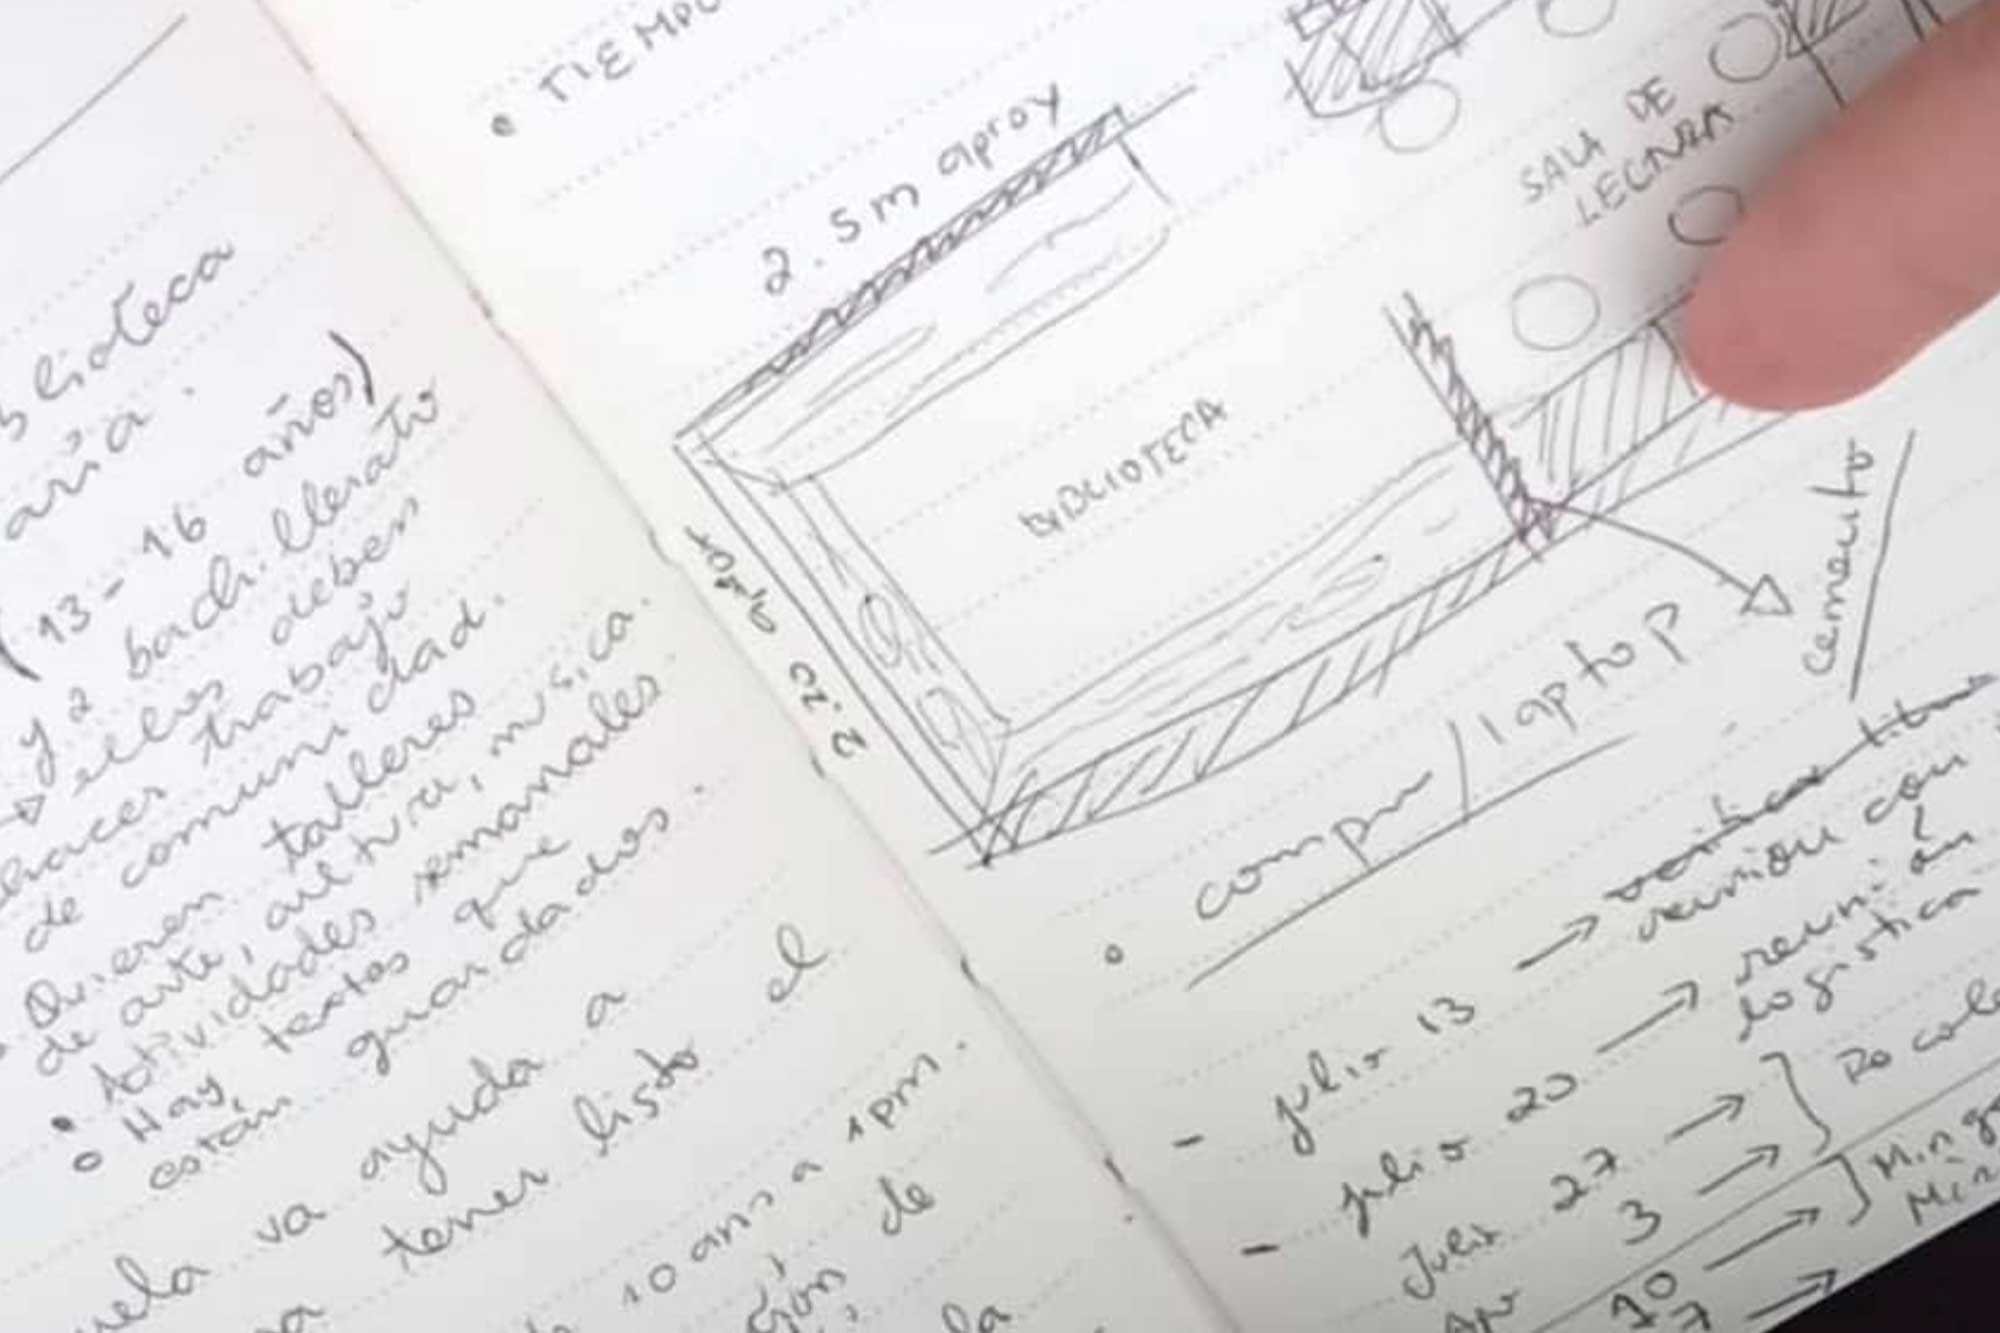 blioteca
aria.
(13-16 años)
y 2 bachillerato
→ ellos deben
hacer trabajo
de comunidad.
Quieren talleres
de arte, cultura, música.
• Actividades semanales
○ Hay textos que
están guardados.
va ayuda a
tener listo el
10 am a 1pm.
de
la
• TIEMPO
2.5m aprox
SALA DE
LECTURA
BIBLIOTECA
2.20 aprox
cemento
• compu/laptop
- julio 13 →
reunión con
- julio 20 → reunión
logística
Julio 27 →
3 →
10 →
7 →